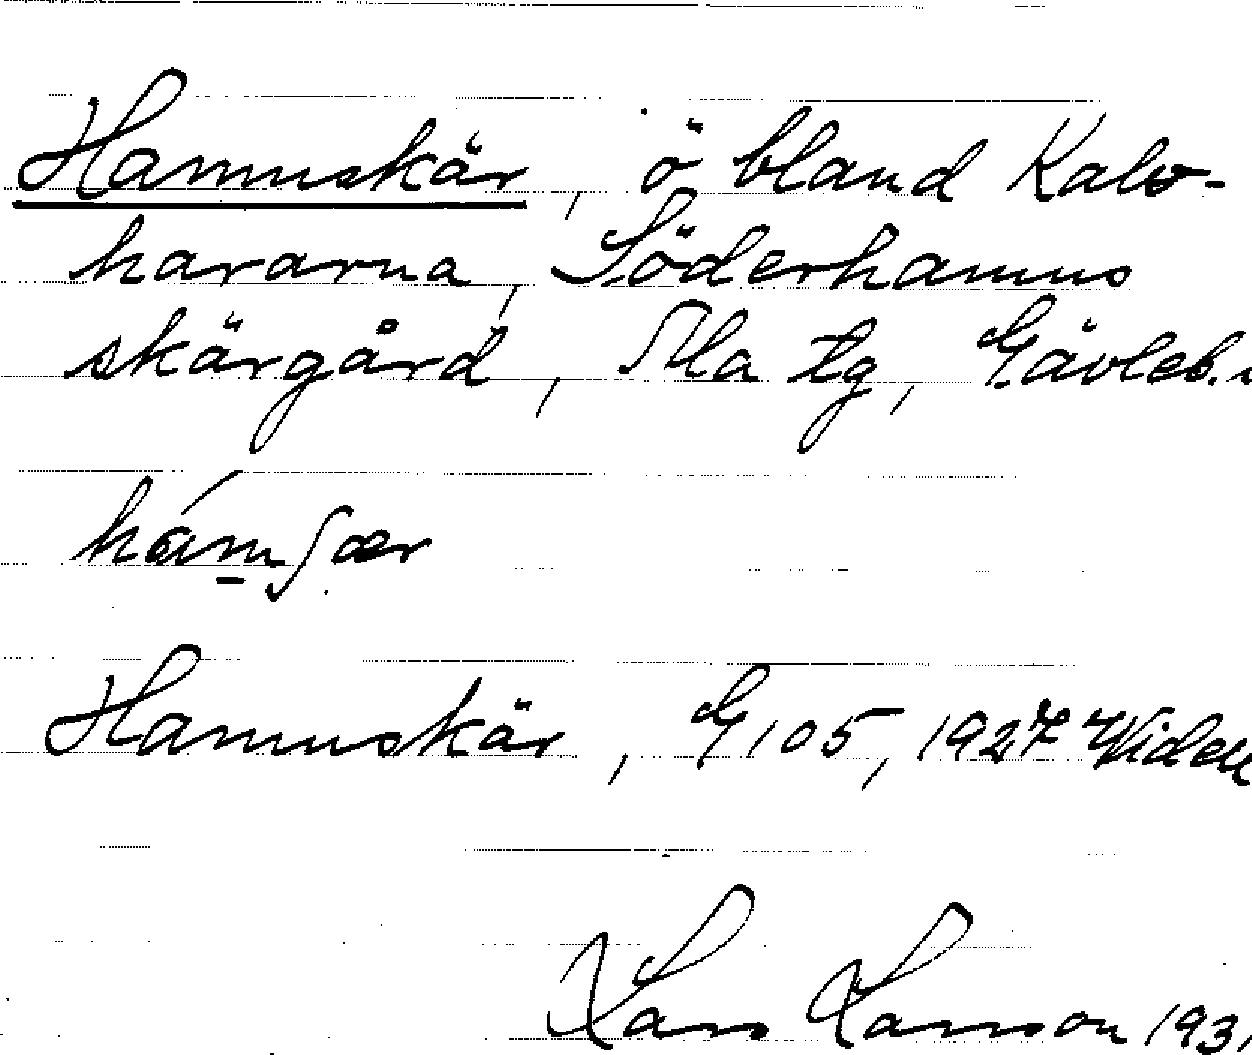 Hamnskär, ö bland Kalv-
hararna, Söderhamns
skärgård, Ala tg, Gävleb.
hámʃær
Hamnskär, G 105, 1927 Widell
Lars Larsson 193